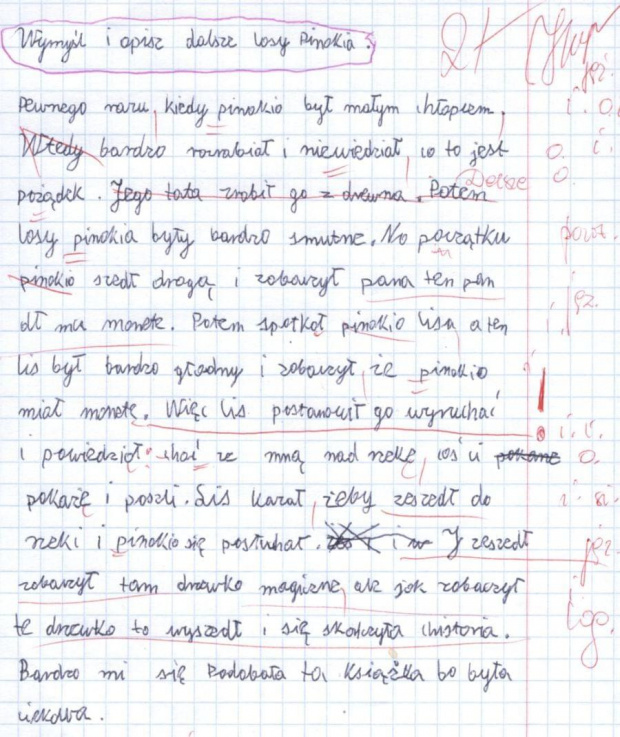 Wymyśl i opisz dalsze losy Pinokia. 2+
Pewnego razu, kiedy pinokio był małym chłopcem, i. o.
Wtedy bardzo rozrabiał i niewiedział, co to jest o. i.
pożądek. Jego tata zrobił go z drewna. Potem Dalsze o.
losy pinokia były bardzo smutne. No początku powt.
pinokio szedł drogą i zobaczył pana ten pan jęz.
dł mu monete. Potem spotkoł pinokio lisa a ten
lis był bardzo głodny i zobaczył, że pinokio
miał monetę. Więc lis postanowił go wyruchać !
i powiedział: chać ze mną nad rzekę, coś ci pokane o.
pokarzę i poszli. Lis kazał, żeby zeszedł do
rzeki i pinokio się posłuchał. i J zeszedł jęz.
zobaczył tam drzewko magiczne, ale jak zobaczył
te drzewko to wyszedł i się skończyła chistoria.
Bardzo mi się Podobała ta Książka bo była
ciekawa.